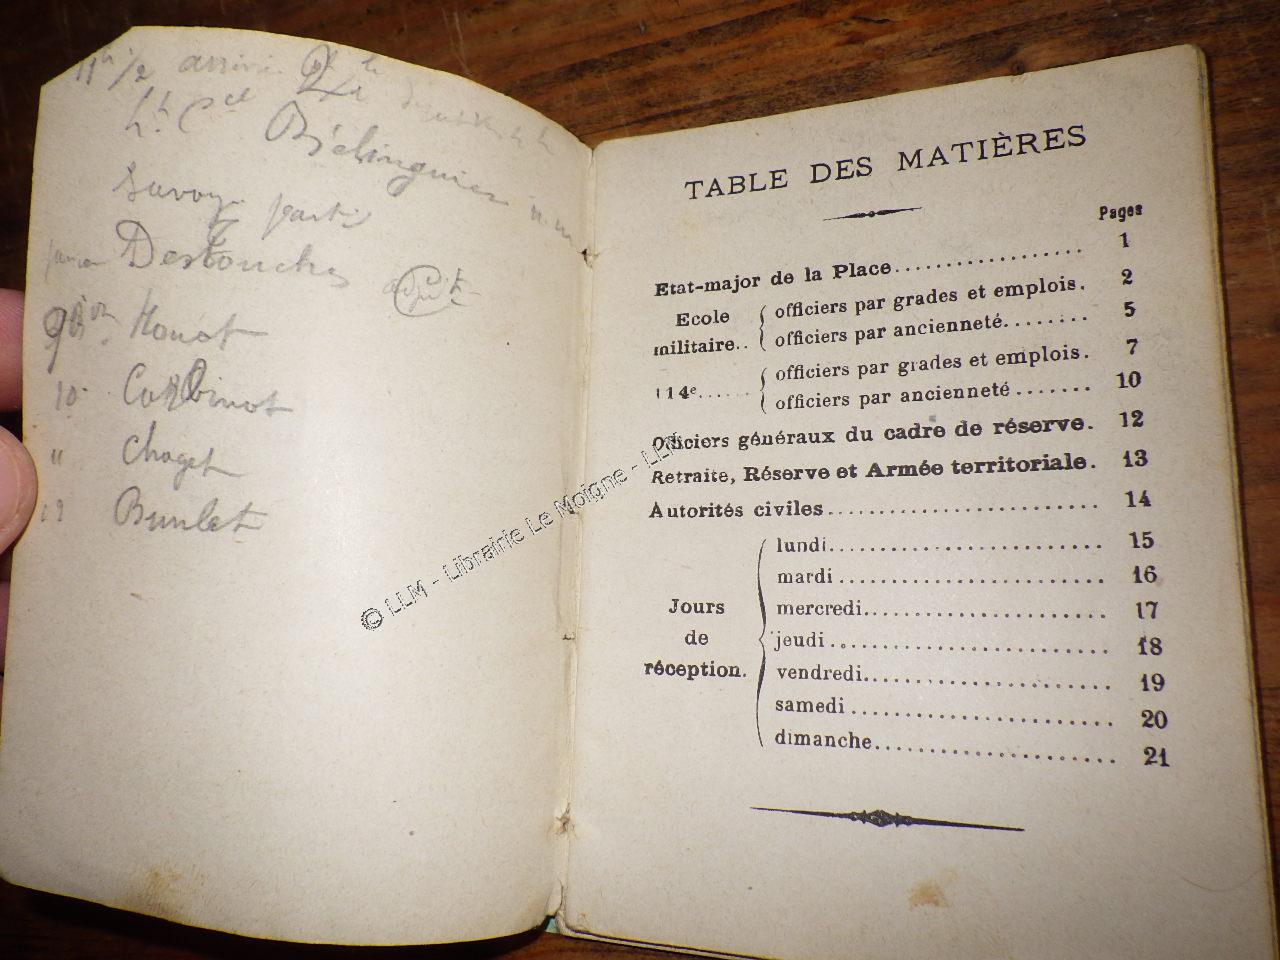 11h 1/2 arrivé
Lt Cel Biélinguier
Savoy parti
Destouches adjt
Honot
10 Corbinot
" Choget
Burlet
© LLM - Librairie Le Moigne - LLM
TABLE DES MATIÈRES
Pages
Etat-major de la Place.................. 1
Ecole militaire.. { officiers par grades et emplois. 2
officiers par ancienneté........ 5
114e...... { officiers par grades et emplois. 7
officiers par ancienneté....... 10
Officiers généraux du cadre de réserve. 12
Retraite, Réserve et Armée territoriale. 13
Autorités civiles........................ 14
Jours de réception. { lundi........................ 15
mardi........................ 16
mercredi..................... 17
jeudi........................ 18
vendredi..................... 19
samedi....................... 20
dimanche.................... 21